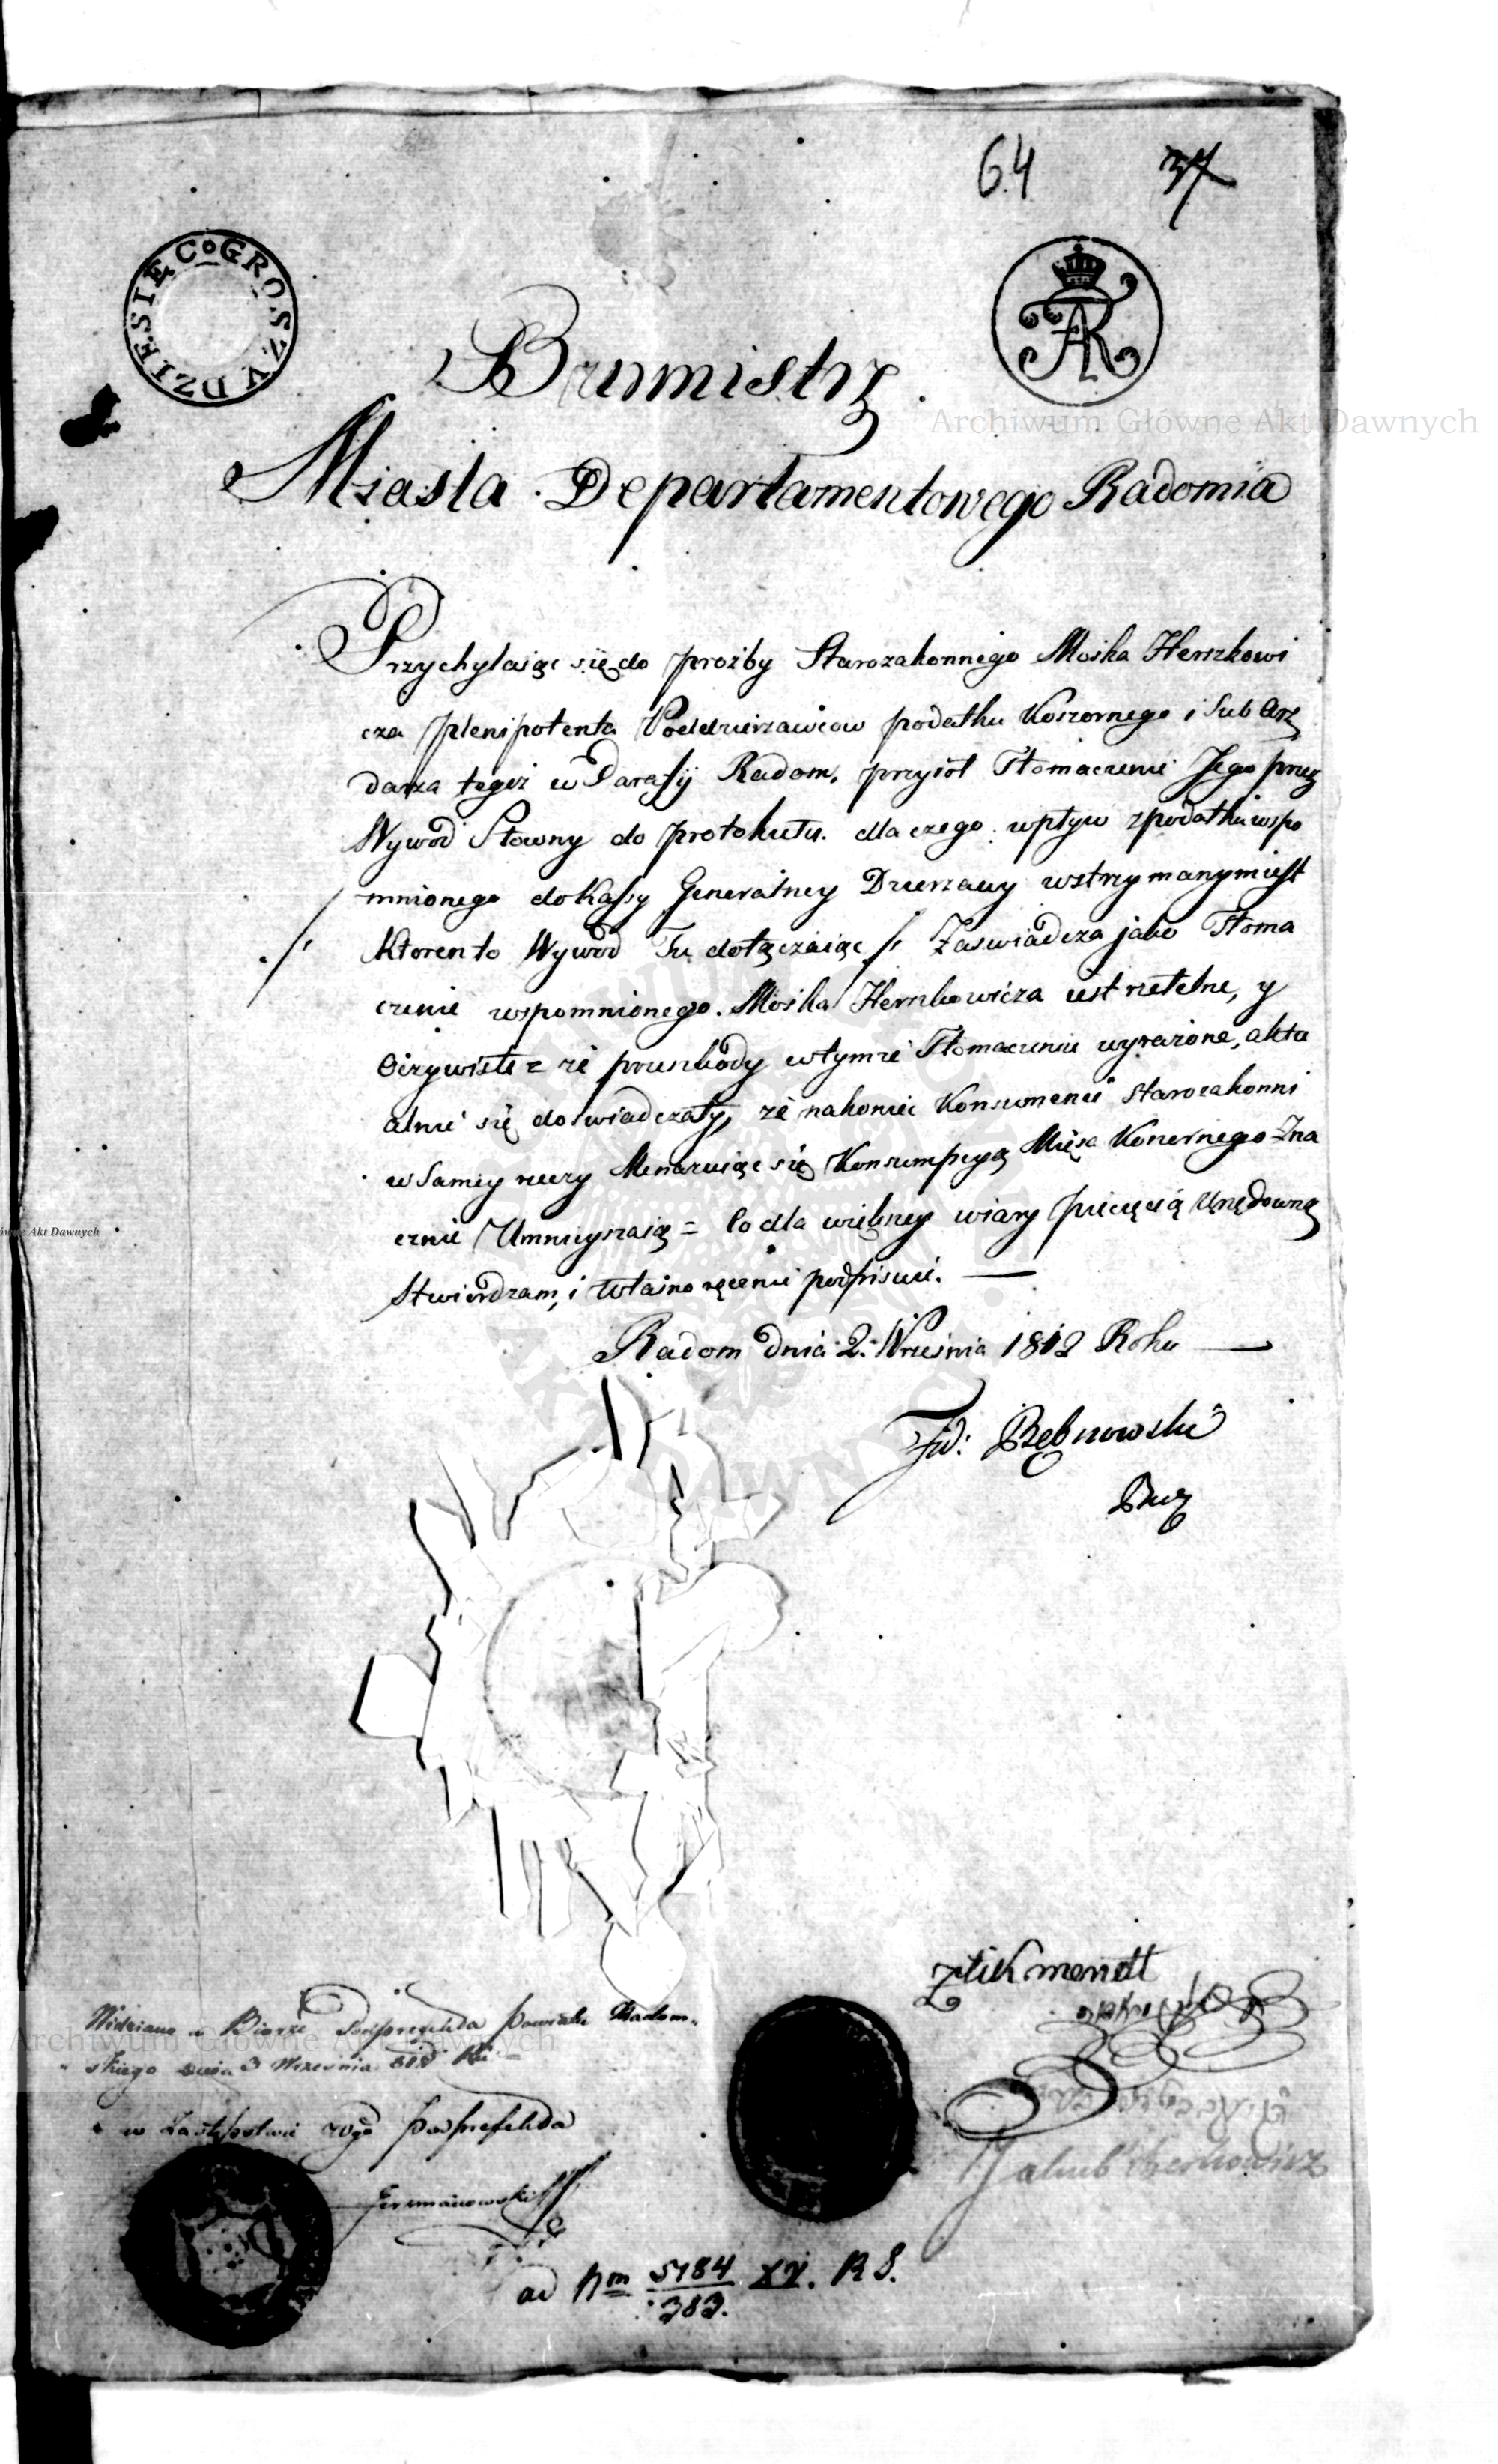 64 37
DZIESIĘC GROSZY
AR
Burmistrz
Miasta Departamentowego Radomia
Przychylaiąc się do proźby Starozakonnego Moska Herszkowi
cza plenipotenta Poddzierzawcow podatku Koszernego i Sub Arę
darza tegoż w Parafij Radom. przyioł Tłomaczenie Jego przez
Wywod Słowny do protokułu. dla czego wpływ z podatku wspo
mnionego do Kassy Generalney Dzierzawy wstrzymanym iest
./. Ktoren to Wywod Tu dołączaiąc ./. Zaswiadcza jako Tłoma
czenie wspomnionego Moska Herszkowicza iest rzetelne, y
oczywiste = że przeszkody w tymże Tłomaczeniu wyrażone, aktu
alnie się doswiadczały, że nakoniec Konsumenci starozakonni
w Samey rzeczy Menazuiąc się Konsumpcyą Mięsa Koszernego Zna
cznie Umnieyszaią = Co dla większey wiary pieczęcią Urzędowną
stwierdzam, i własnoręcznie podpisuie. —
Radom dnia 2. Wrzesnia 1812 Roku —
Bębnowski
Burz
Widziano w Biorze Podprefekta Powiatu Radom„
„skiego dnia 3 Wrzesnia 812 Ru
w Zastępstwie Podprefekta
Jakub Herkowicz
ad Nm 5184/383. XV. R S.
Archiwum Główne Akt Dawnych
Archiwum Główne Akt Dawnych